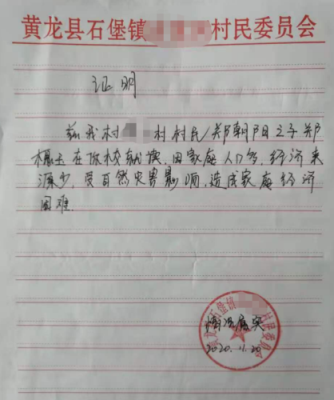 黄龙县石堡镇村民委员会
证明
兹我村 村村民郑朝阳之子郑
在你校就读,因家庭人口多,经济来
源少,受自然灾害影响,造成家庭经济
困难.
情况属实
2020.11.20